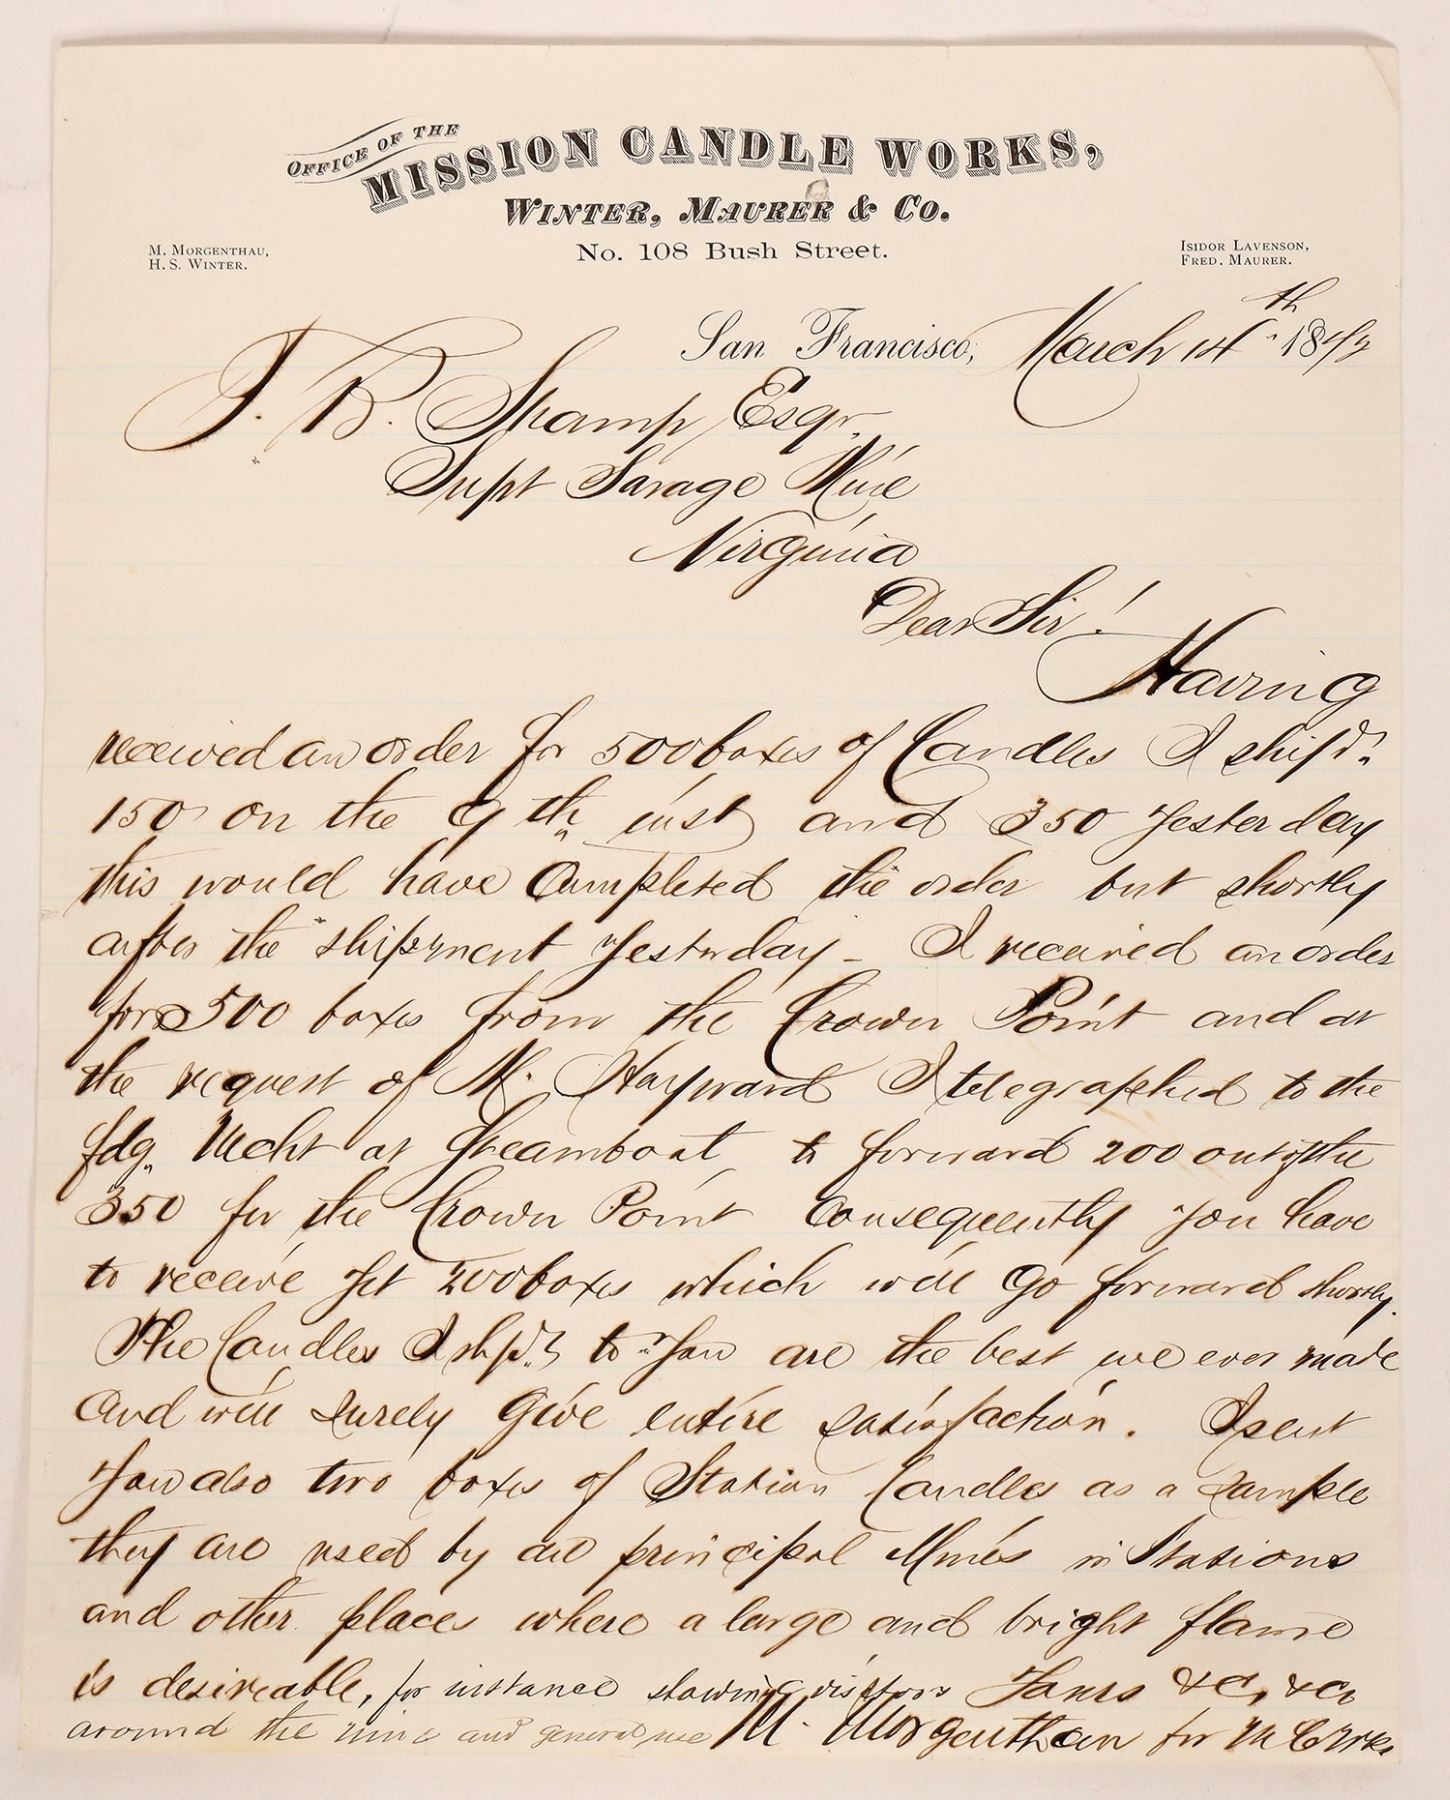 OFFICE OF THE
MISSION CANDLE WORKS,
WINTER, MAURER & CO.
No. 108 Bush Street.
M. MORGENTHAU,
H. S. WINTER.
ISIDOR LAVENSON,
FRED. MAURER.
San Francisco, March 14th 187
J. B. Shamp Esqr.
Supt Savage Mine
Virginia
Dear Sir!
Having
received an order for 500 boxes of Candles I ship'd.
150 on the 9th inst and 350 yesterday
this would have Completed the order but shortly
after the shipment yesterday - I received an order
for 500 boxes from the Crown Point and at
the request of M. Hayward I telegraphed to the
fdg. Mcht at Steamboat to forward 200 out of the
350 for the Crown Point Consequently you have
to receive yet 200 boxes which will go forward shortly.
The Candles I shp'd. to you are the best we ever made
and will surely give entire satisfaction. I sent
You also two boxes of Station Candles as a sample
they are used by all principal Mines in Stations
and other places where a large and bright flame
is desireable, for instance showing visitors Yours &c, &c
around the mine and general use M. Morgenthau for M C Wrks